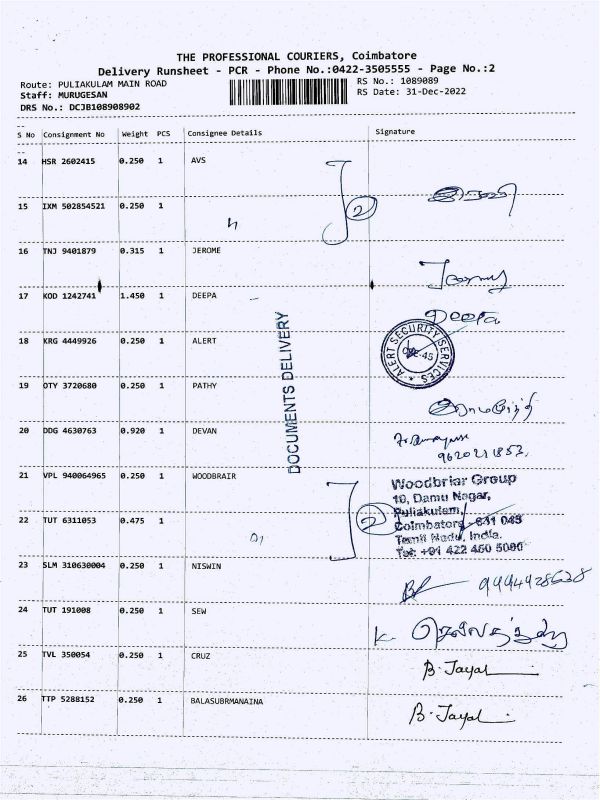 THE PROFESSIONAL COURIERS, Coimbatore
Delivery Runsheet - PCR - Phone No.:0422-3505555 - Page No.:2
Route: PULIAKULAM MAIN ROAD
RS No.: 1089089
Staff: MURUGESAN
RS Date: 31-Dec-2022
DRS No.: DCJB108908902
S No Consignment No Weight PCS Consignee Details Signature
14 HSR 2602415 0.250 1 AVS
15 IXM 502854521 0.250 1
2
16 TNJ 9401879 0.315 1 JEROME
17 KOD 1242741 1.450 1 DEEPA
Deepa
DOCUMENTS DELIVERY
18 KRG 4449926 0.250 1 ALERT
ALERT SECURITY SERVICES
CBE-45
19 OTY 3720680 0.250 1 PATHY
20 DDG 4630763 0.920 1 DEVAN
9620211853.
21 VPL 940064965 0.250 1 WOODBRAIR
Woodbriar Group
10, Damu Nagar,
Puliakulam,
Coimbatore - 641 045
Tamil Nadu, India.
Tel: +91 422 450 5000
22 TUT 6311053 0.475 1
2
23 SLM 310630004 0.250 1 NISWIN
9994928628
24 TUT 191008 0.250 1 SEW
25 TVL 350054 0.250 1 CRUZ
B. Jayal
26 TTP 5288152 0.250 1 BALASUBRMANAINA
B. Jayal